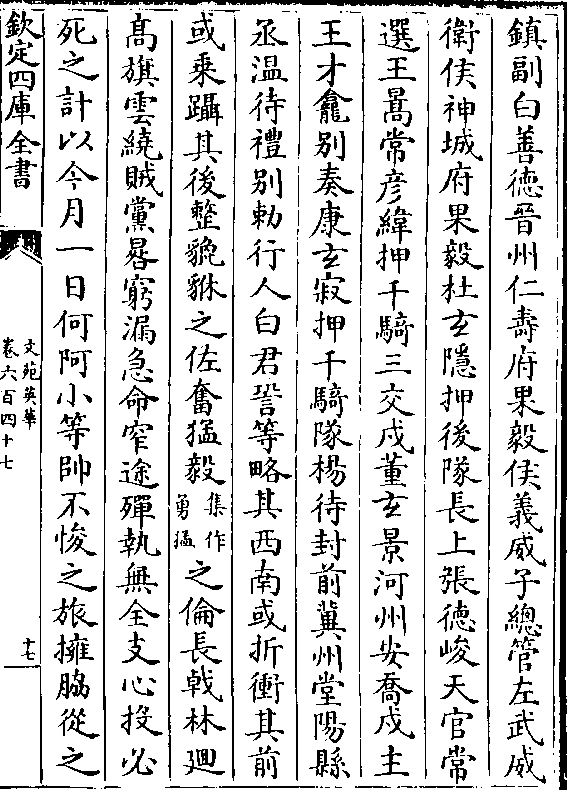 鎮副白善德晉州仁壽府果毅侯義威子總管左武威
衛侯神城府果毅杜玄隱押後隊長上張德峻天官常
選王暠常彥緯押千騎三交戍董玄景河州安喬戍主
王才龕別奏康玄寂押千騎隊楊待封前冀州堂陽縣
丞温待禮別勅行人白君詧等略其西南或折衝其前
或乘躡其後整貔貅之佐奮猛毅集作勇猛之倫長戟林廻
高旗雲繞賊黨晷窮漏急命窄途殫執無全支心投必
死之計以今月一日何阿小等帥不悛之旅擁脇從之
欽定四庫全書
文苑英華
卷六百四十七
十七